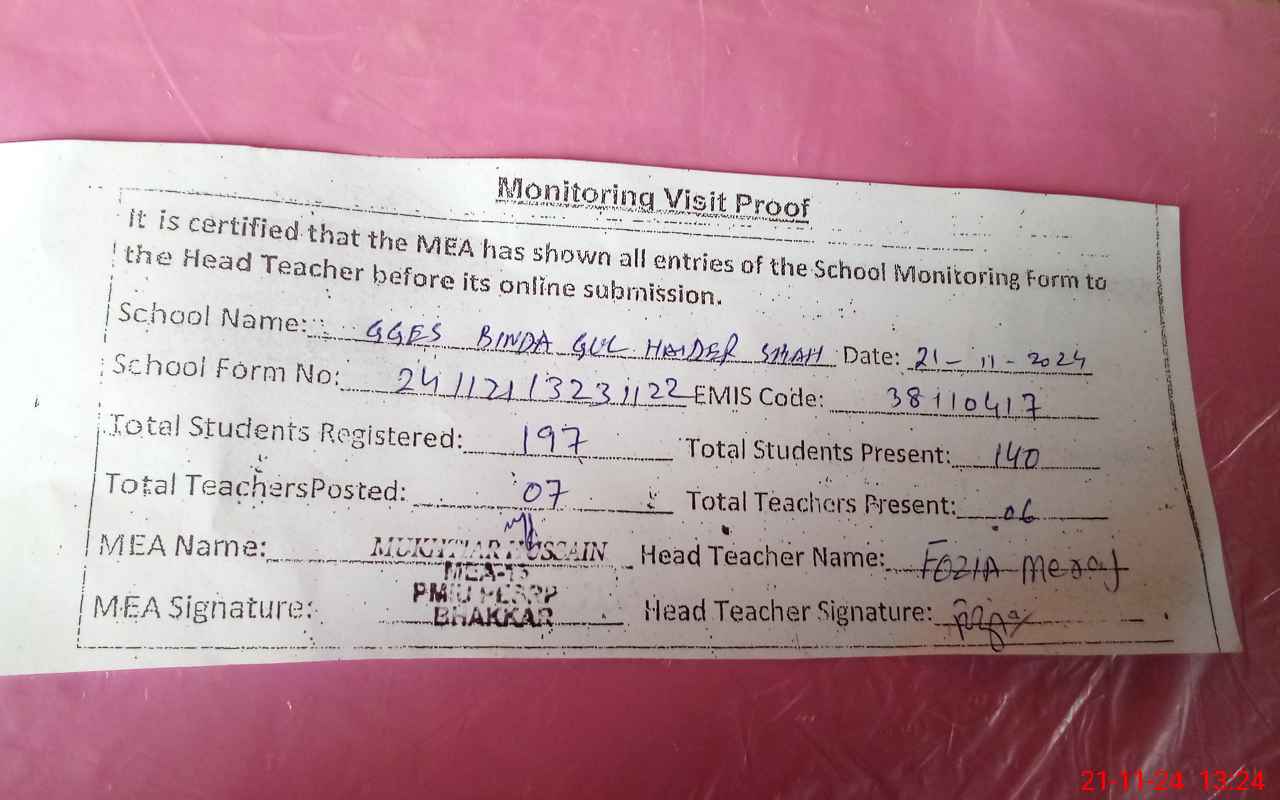 Monitoring Visit Proof
It is certified that the MEA has shown all entries of the School Monitoring Form to
the Head Teacher before its online submission.
School Name: GGES BINDA GUL HAIDER SHAH Date: 21-11-2024
School Form No: 24112113231122 EMIS Code: 38110417
Total Students Registered: 197 Total Students Present: 140
Total TeachersPosted: 07 Total Teachers Present: 06
MEA Name: MUKHTIAR HUSSAIN Head Teacher Name: FOZIA Meraj
MEA-13
PMIU PESRP
MEA Signature: BHAKKAR Head Teacher Signature:
21-11-24 13:24